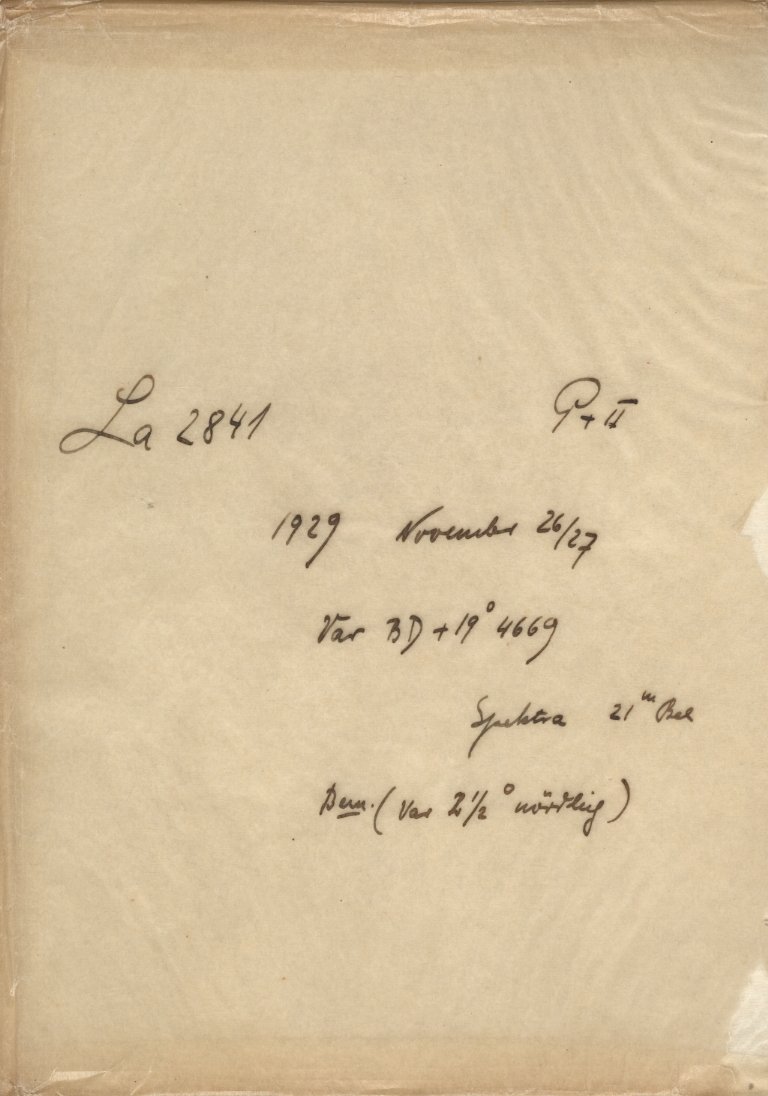 La 2841 P + II
1929 November 26/27
Var BD + 19° 4669
Spektra 21ᵐ Bel
Dem. (Var 2 1/2° nördlich)